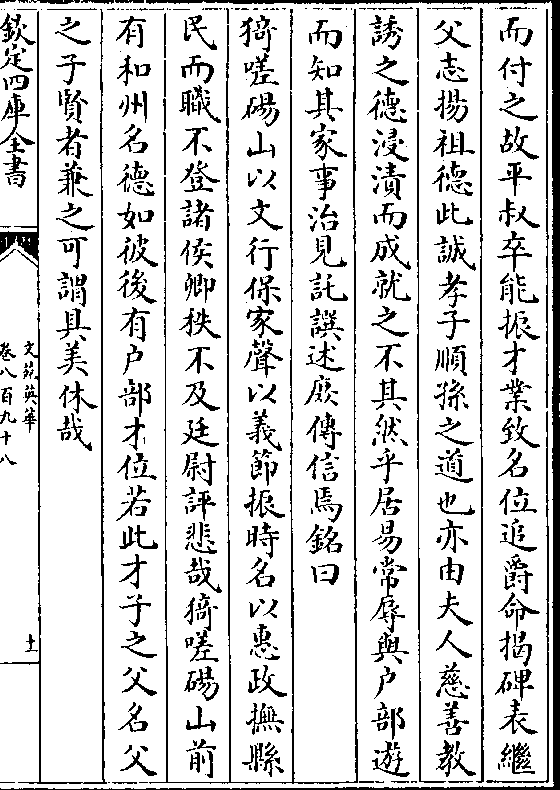 而付之故平叔卒能振才業致名位追爵命揭碑表繼
父志揚祖德此誠孝子順孫之道也亦由夫人慈善教
誘之德浸漬而成就之不其然乎居易常辱與户部遊
而知其家事治見託譔述庶傳信焉銘曰
猗嗟碭山以文行保家聲以義節振時名以惠政撫縣
民而職不登諸侯卿秩不及廷尉評悲哉猗嗟碭山前
有和州名德如彼後有户部才位若此才子之父名父
之子賢者兼之可謂具美休哉
欽定四庫全書
文苑英華
卷八百九十八
十一